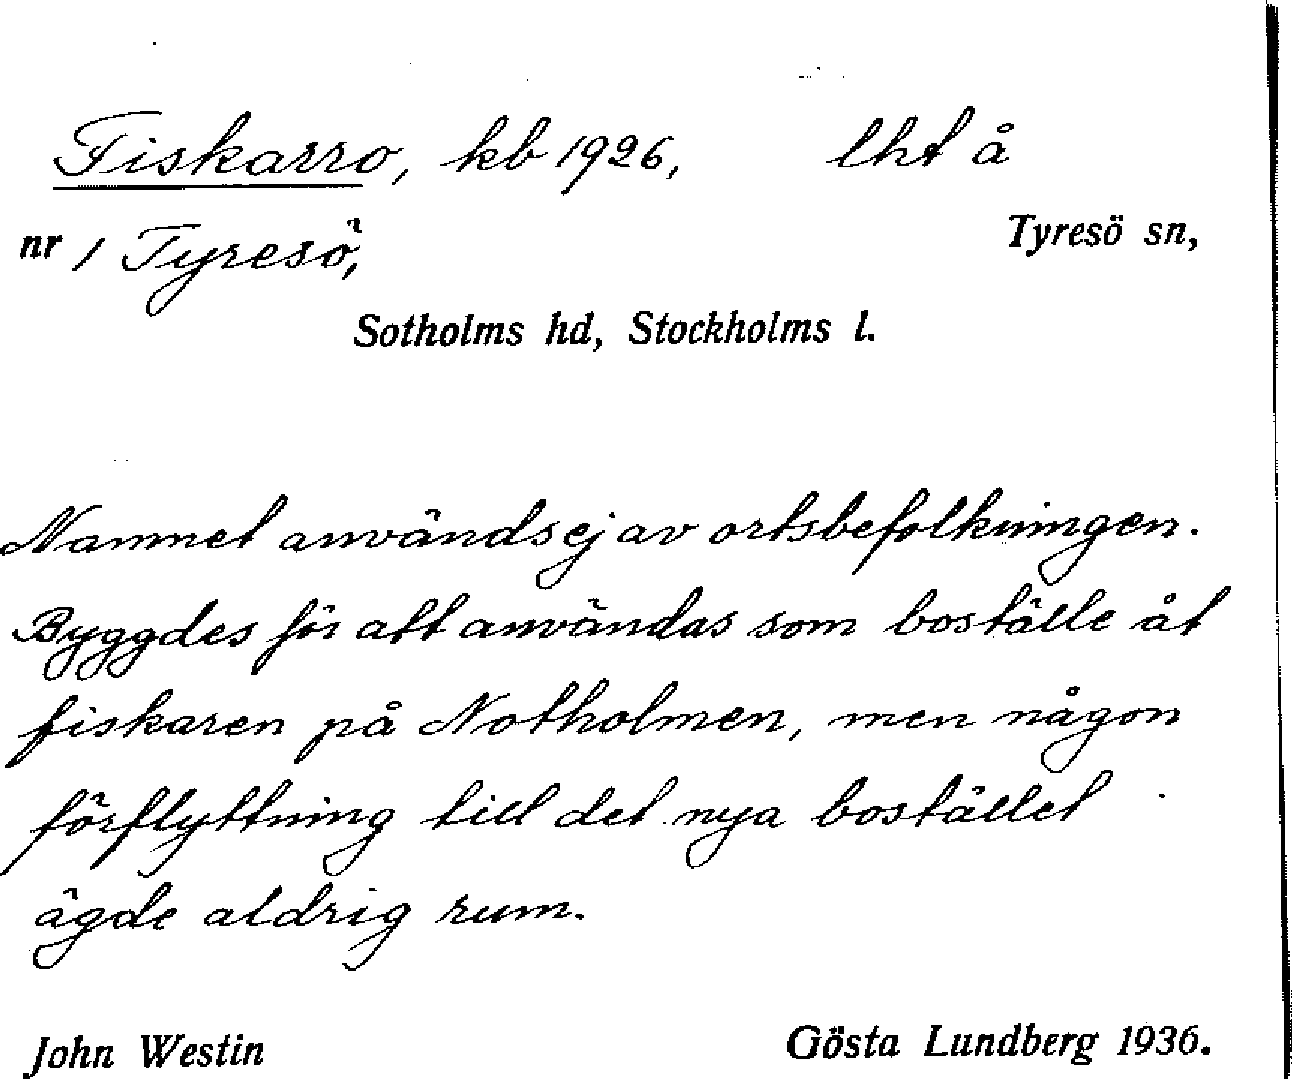 Fiskarro, kb 1926, lht å
nr 1 Tyresö, Tyresö sn,
Sotholms hd, Stockholms l.
Namnet användsej av ortsbefolkningen.
Byggdes för att användas som boställe åt
fiskaren på Notholmen, men någon
förflyttning till det nya bostället
ägde aldrig rum.
John Westin Gösta Lundberg 1936.